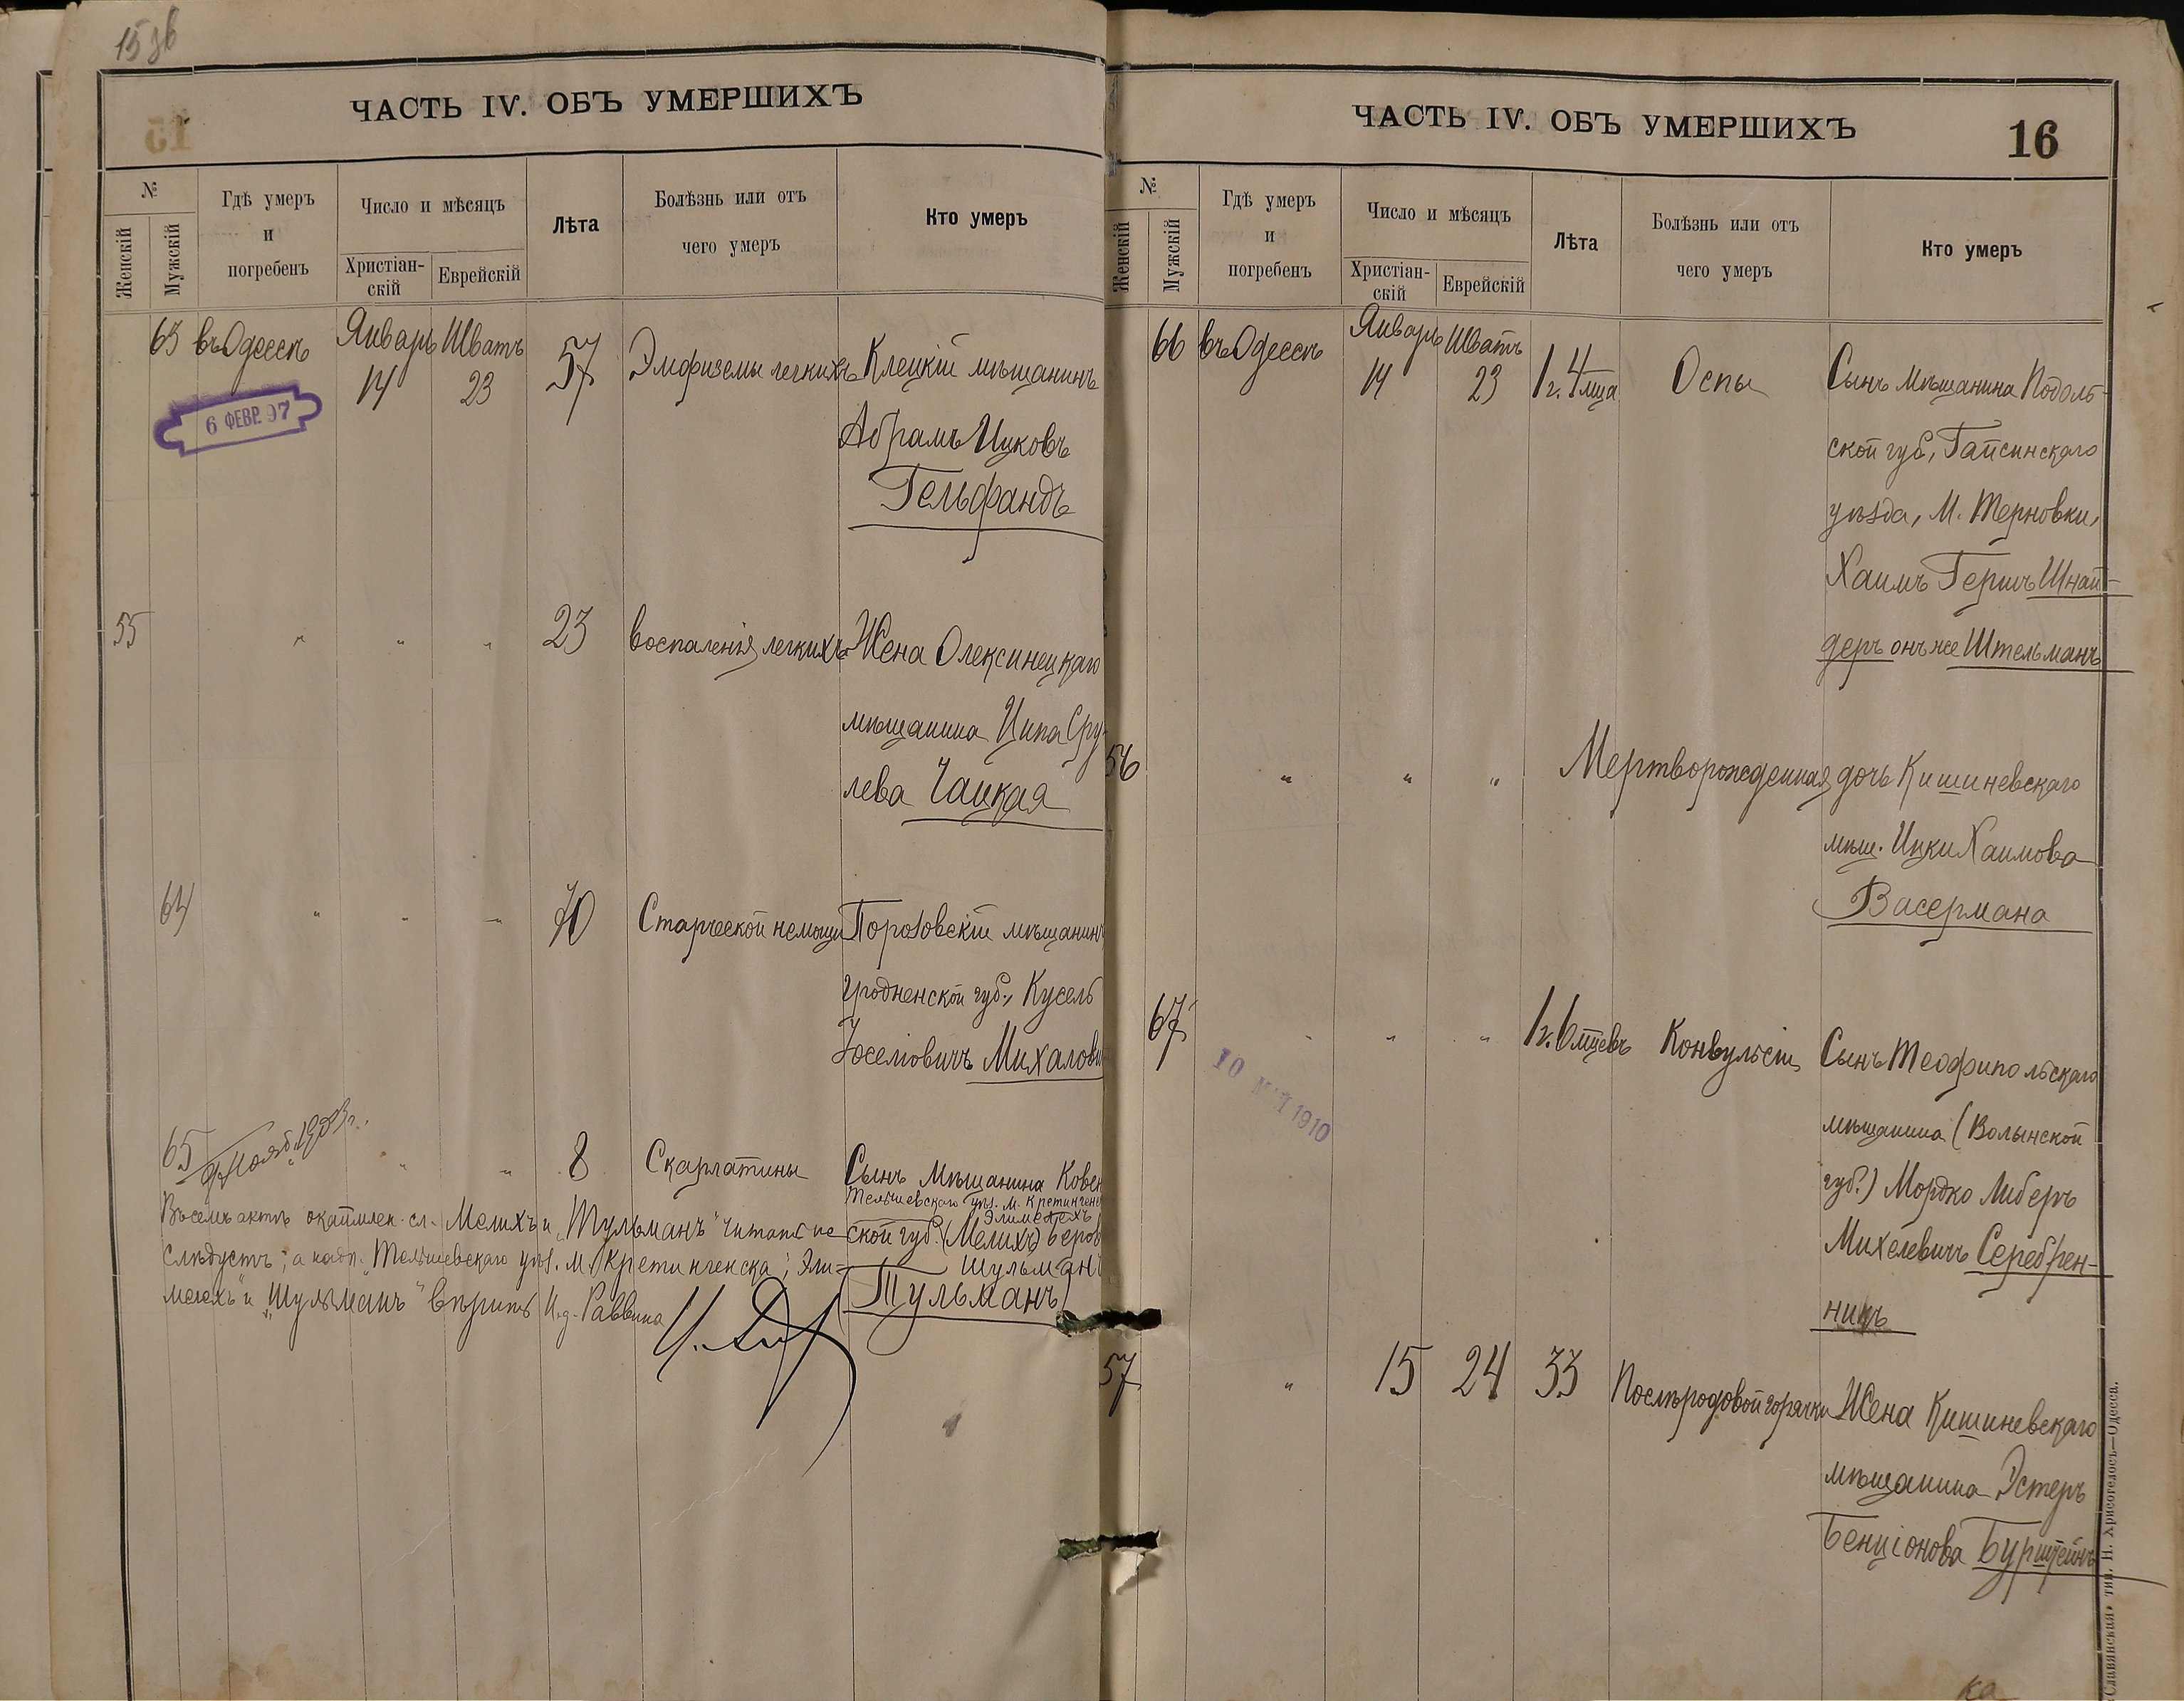 15 об
ЧАСТЬ IV. ОБЪ УМЕРШИХЪ
№
Женскій
Мужскій
Гдѣ умеръ
и
погребенъ
Число и мѣсяцъ
Христіан-
скій
Еврейскій
Лѣта
Болѣзнь или отъ
чего умеръ
Кто умеръ
63 въ Одессѣ Январь Шватъ 57 Эмфиземы легкихъ Клецкій мѣщанинъ
14 23
6 ФЕВР. 97
Абрамъ Ицковъ
Гельфандъ
55 " " " 23 Воспаленія легкихъ Жена Олексинецкаго
мѣщанина Ципа Сру-
лева Чацкая
64 " " " 70 Старческой немощи Порозовскій мѣщанинъ
Гродненской губ., Кусель
Іоселіовичъ Михалови
65 " " 8 Скарлатины Сынъ Мѣщанина Ковен
Нояб. 1903 г.
Тельшевскаго уѣз. м. Кретинген
Элимелехъ
ской губ. (Мелихъ) Беров
Шульманъ
(Тульманъ)
Въ семъ актѣ окаймлен. сл. "Мелихъ" и "Тульманъ" читать не
слѣдуетъ; а надп. "Тельшевскаго уѣз. м. Кретингенска; Эли-
мелехъ" и "Шульманъ" вѣрить И. д. Раввина
ЧАСТЬ IV. ОБЪ УМЕРШИХЪ
16
№
Женскій
Мужскій
Гдѣ умеръ
и
погребенъ
Число и мѣсяцъ
Христіан-
скій
Еврейскій
Лѣта
Болѣзнь или отъ
чего умеръ
Кто умеръ
66 въ Одессѣ Январь Шватъ 1 г. 4 мца Оспы Сынъ Мѣщанина Подоль-
14 23
ской губ., Гайсинскаго
уѣзда, М. Терновки,
Хаимъ Гершъ Шнай-
деръ онъ же Штельманъ
56 " " " Мертворожденная дочь Кишиневскаго
мѣщ. Ицки Хаимова
Васермана
67 " " " 1 г. 6 мцевъ Конвульсіи Сынъ Теофипольскаго
10 1910
мѣщанина (Волынской
губ.) Мордко Либеръ
Михелевичъ Серебрен-
никъ
57 " 15 24 33 Послѣродовой горячки Жена Кишиневскаго
мѣщанина Эстеръ
Бенціонова Бурштейнъ
«Славянская» тип. Н. Хрисогелосъ—Одесса.